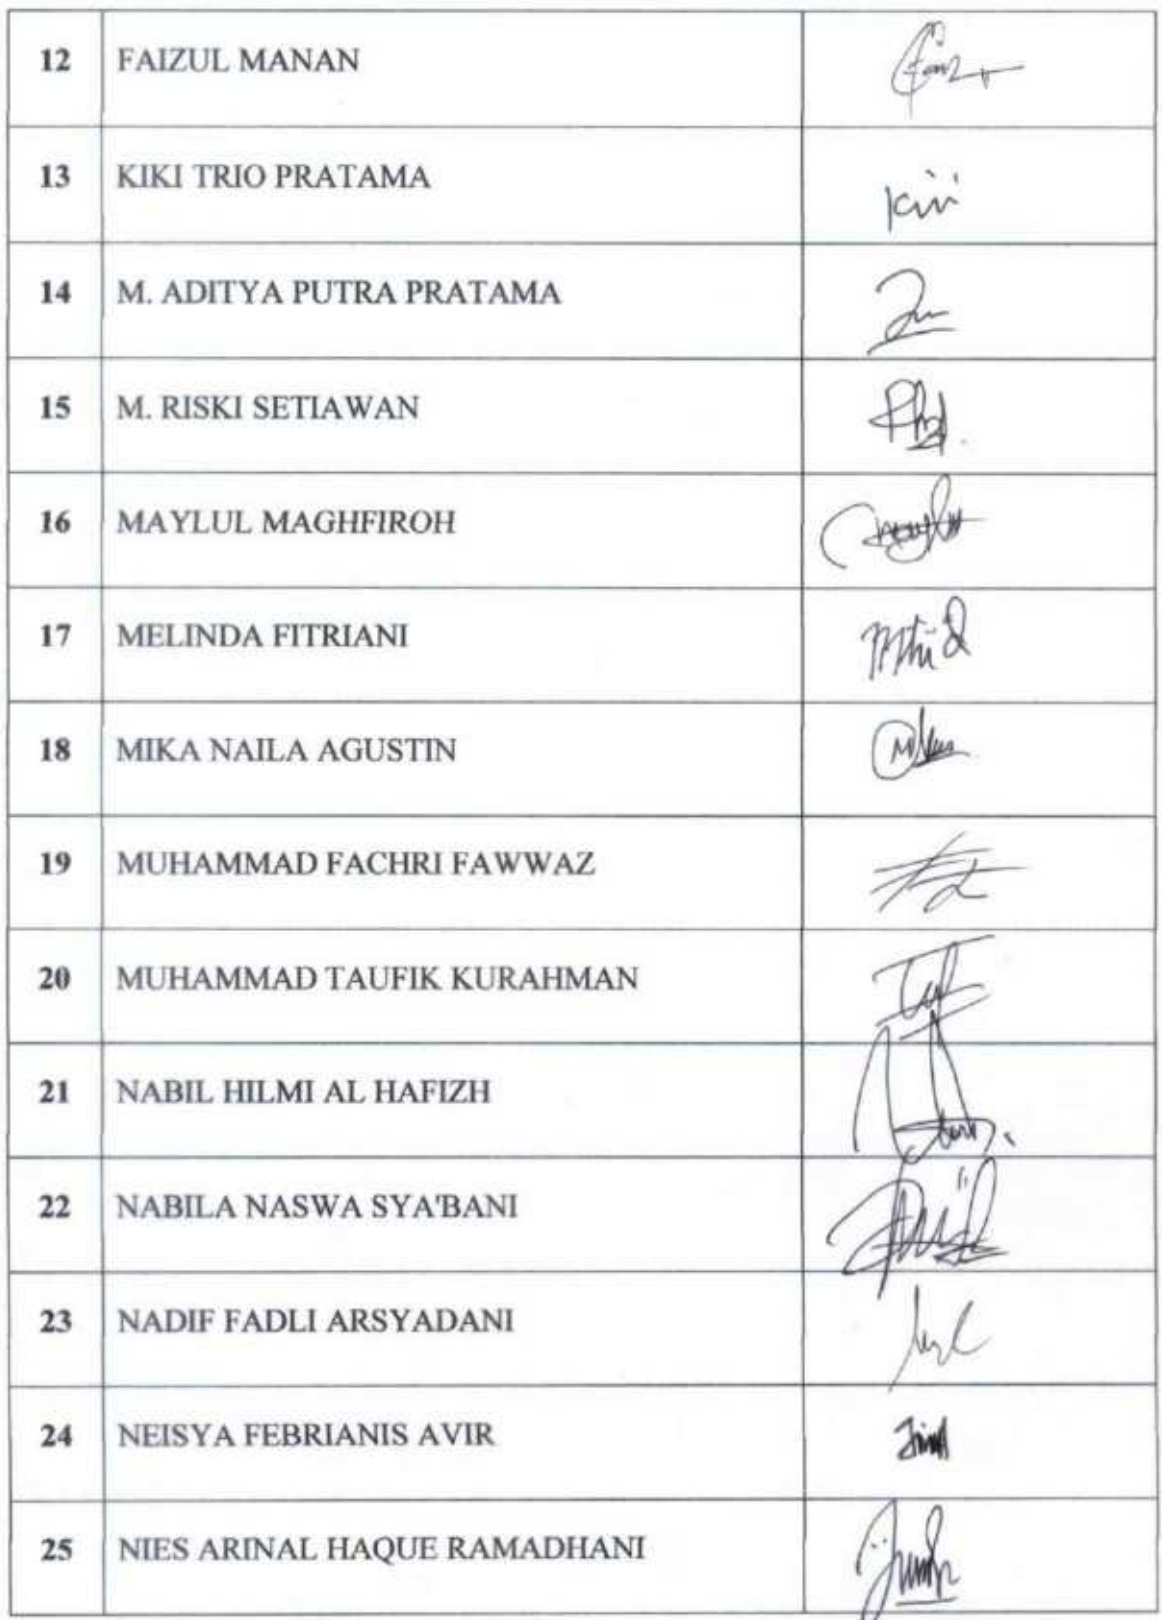 12 FAIZUL MANAN
13 KIKI TRIO PRATAMA
14 M. ADITYA PUTRA PRATAMA
15 M. RISKI SETIAWAN
16 MAYLUL MAGHFIROH
17 MELINDA FITRIANI
18 MIKA NAILA AGUSTIN
19 MUHAMMAD FACHRI FAWWAZ
20 MUHAMMAD TAUFIK KURAHMAN
21 NABIL HILMI AL HAFIZH
22 NABILA NASWA SYA'BANI
23 NADIF FADLI ARSYADANI
24 NEISYA FEBRIANIS AVIR
25 NIES ARINAL HAQUE RAMADHANI